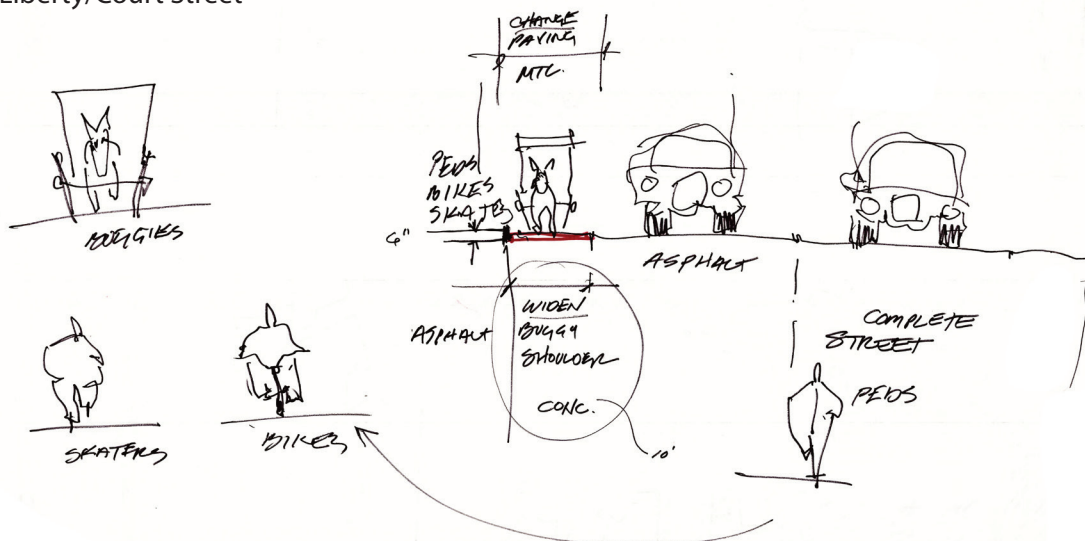 Liberty/Court Street
CHANGE
PAVING
MTL.
BUGGIES
PEDS
BIKES
SKATES
6"
ASPHALT
ASPHALT
WIDEN
BUGGY
SHOULDER
CONC.
10'
COMPLETE
STREET
PEDS
SKATERS
BIKES